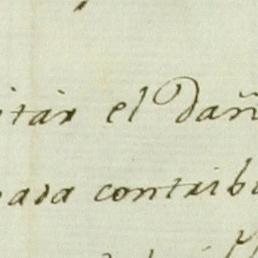 itar el dañ
ada contrib